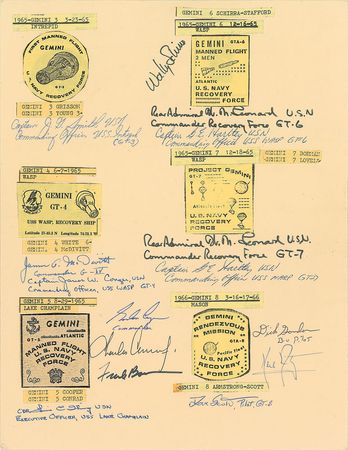 1965-GEMINI 3 3-23-65
INTREPID
FIRST MANNED FLIGHT
GEMINI
U.S. NAVY RECOVERY FORCE
GEMINI 3 GRISSOM
GEMINI 3 YOUNG 3-
Captain J. USN
Commanding Officer USS Intrepid
(GT-3)
GEMINI 4 6-7-1965
WASP
GEMINI
GT-4
USS WASP, RECOVERY SHIP
ATLANTIC
GEMINI 4 WHITE 6-
GEMINI 4 McDIVITT
James A. McDivitt
Commander G-IV
Captain James W. Conger, USN
Commanding Officer, USS WASP GT-4
GEMINI 5 8-29-1965
LAKE CHAMPLAIN
GEMINI
ATLANTIC
MANNED FLIGHT
U.S. NAVY
RECOVERY
FORCE
GEMINI 5 COOPER
GEMINI 5 CONRAD
USN
EXECUTIVE OFFICER, USS LAKE CHAMPLAIN
Gordon Cooper
Charles Conrad Jr.
Frank Borman
GEMINI 6 SCHIRRA-STAFFORD
1965-GEMINI 6 12-16-65
WASP
Wally Schirra
GEMINI GTA-6
MANNED FLIGHT
2 MEN
ATLANTIC
U.S. NAVY
RECOVERY
FORCE
Rear Admiral W. M. Leonard U.S.N
Commander Recovery Force GT-6
Captain G E Hartley, USN
Commanding Officer USS WASP GT-6
1965-GEMINI 7 12-18-65
WASP
GEMINI 7 BORMAN
GEMINI 7 LOVELL
PROJECT GEMINI
GT-7
ATLANTIC
U.S. NAVY
RECOVERY
FORCE
Rear Admiral W. M. Leonard USN
Commander Recovery Force GT-7
Captain G E Hartley, USN
Commanding Officer USS WASP GT-7
1966-GEMINI 8 3-16-17-66
MASON
GEMINI GTA-8
RENDEZVOUS
MISSION
Pacific
U.S. NAVY
RECOVERY
FORCE
Dick Gordon
B.U. Pilot
GEMINI 8 ARMSTRONG-SCOTT
Dave Scott, Pilot, GT-8